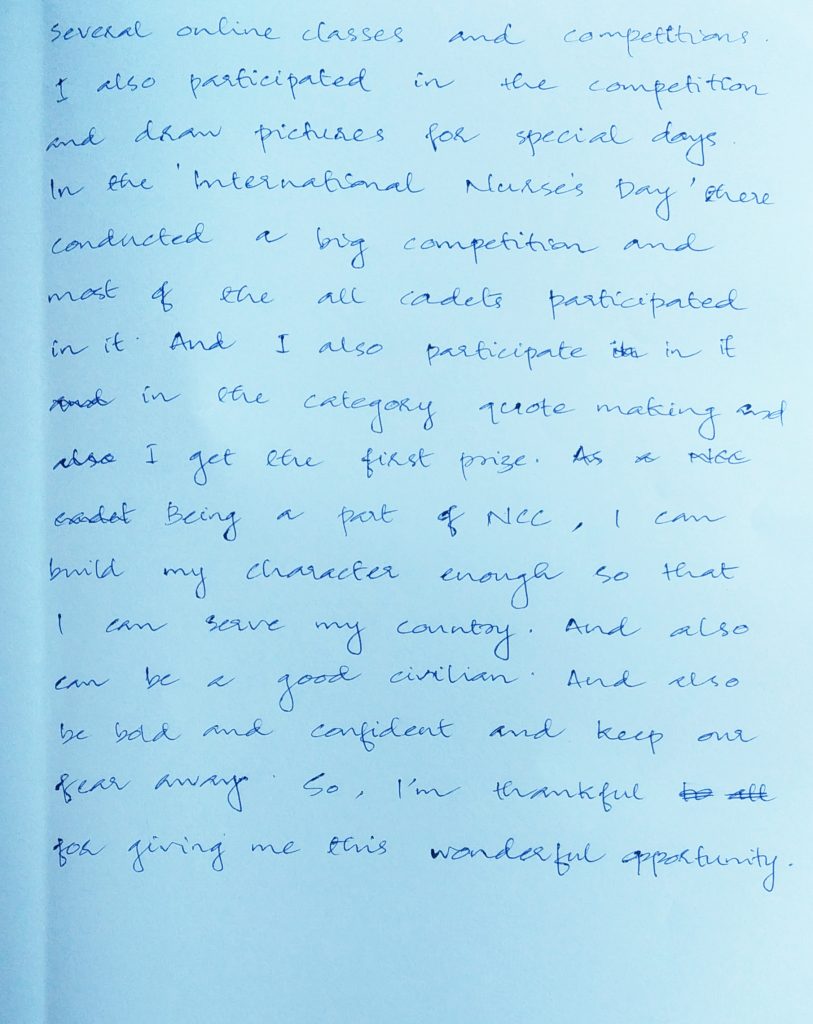 several online classes and competitions.
I also participated in the competition
and draw pictures for special days.
In the 'International Nurse's Day' there
conducted a big competition and
most of the all cadets participated
in it. And I also participate in in it
and in the category quote making and
also I get the first prize. As a NCC
cadet Being a part of NCC, I can
build my character enough so that
I can serve my country. And also
can be a good civilian. And also
be bold and confident and keep our
fear away. So, I'm thankful to all
for giving me this wonderful opportunity.